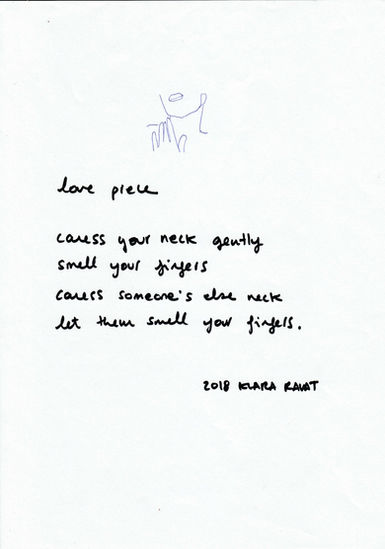 love piece
caress your neck gently
smell your fingers
caress someone's else neck
let them smell your fingers.
2018 KLARA RAVAT